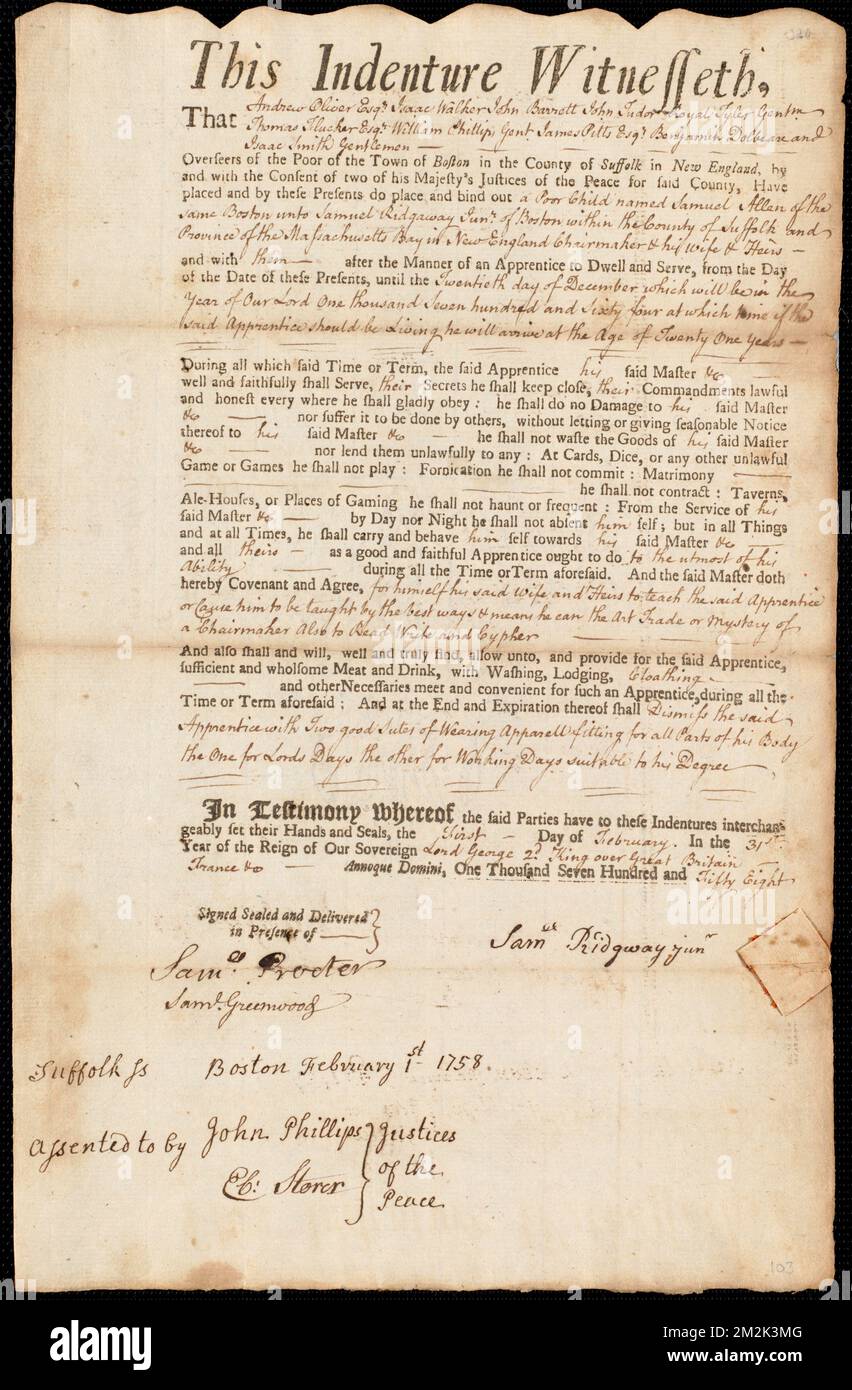 This Indenture Witnesseth,
That Andrew Oliver Esqr. Isaac Walker John Barrett John Tudor Royal Tyler Gentm
Thomas Flucker Esqr. William Phillips Gent James Pitts Esqr. Benjamin Dolbeare and
Isaac Smith Gentlemen —
Overseers of the Poor of the Town of Boston in the County of Suffolk in New England, by
and with the Consent of two of his Majesty's Justices of the Peace for said County, Have
placed and by these Presents do place and bind out a Poor Child named Samuel Allen of the
same Boston unto Samuel Ridgaway Junr. of Boston within the County of Suffolk and
Province of the Massachusetts Bay in New England Chairmaker & his Wife & Heirs —
and with them — after the Manner of an Apprentice to Dwell and Serve, from the Day
of the Date of these Presents, until the Twentieth day of December which will be in the
Year of Our Lord One thousand Seven hundred and Sixty four at which time if the
said Apprentice should be Living he will arrive at the Age of Twenty One Years —
During all which said Time or Term, the said Apprentice his said Master &c —
well and faithfully shall Serve, their Secrets he shall keep close, their Commandments lawful
and honest every where he shall gladly obey: he shall do no Damage to his said Master
&c — nor suffer it to be done by others, without letting or giving seasonable Notice
thereof to his said Master &c — he shall not waste the Goods of his said Master
&c — nor lend them unlawfully to any: At Cards, Dice, or any other unlawful
Game or Games he shall not play: Fornication he shall not commit: Matrimony —
he shall not contract: Taverns,
Ale-Houses, or Places of Gaming he shall not haunt or frequent: From the Service of his
said Master &c — by Day nor Night he shall not absent him self; but in all Things
and at all Times, he shall carry and behave him self towards his said Master &c —
and all theirs — as a good and faithful Apprentice ought to do to the utmost of his
Ability — during all the Time or Term aforesaid. And the said Master doth
hereby Covenant and Agree, for himself his said Wife and Heirs to teach the said Apprentice
or Cause him to be taught by the best ways & means he can the Art Trade or Mystery of
a Chairmaker Also to Read Write and Cypher
And also shall and will, well and truly find, allow unto, and provide for the said Apprentice,
sufficient and wholsome Meat and Drink, with Washing, Lodging, Cloathing —
and other Necessaries meet and convenient for such an Apprentice, during all the
Time or Term aforesaid: And at the End and Expiration thereof shall Dismiss the said
Apprentice with Two good Sutes of Wearing Apparell fitting for all Parts of his Body
the One for Lords Days the other for Working Days suitable to his Degree
In Testimony whereof, the said Parties have to these Indentures interchan-
geably set their Hands and Seals, the First — Day of February. In the 31st.
Year of the Reign of Our Sovereign Lord George 2d. King over Great Britain —
France &c — Annoque Domini, One Thousand Seven Hundred and Fifty Eight
Signed Sealed and Delivered
in Presence of —
Samll. Ridgway junr
Saml. Procter
Saml. Greenwood
Suffolk ss Boston February 1st 1758.
Assented to by John Phillips Justices
Eb: Storer of the
Peace
103
alamy
Image ID: 2M2K3MG
www.alamy.com